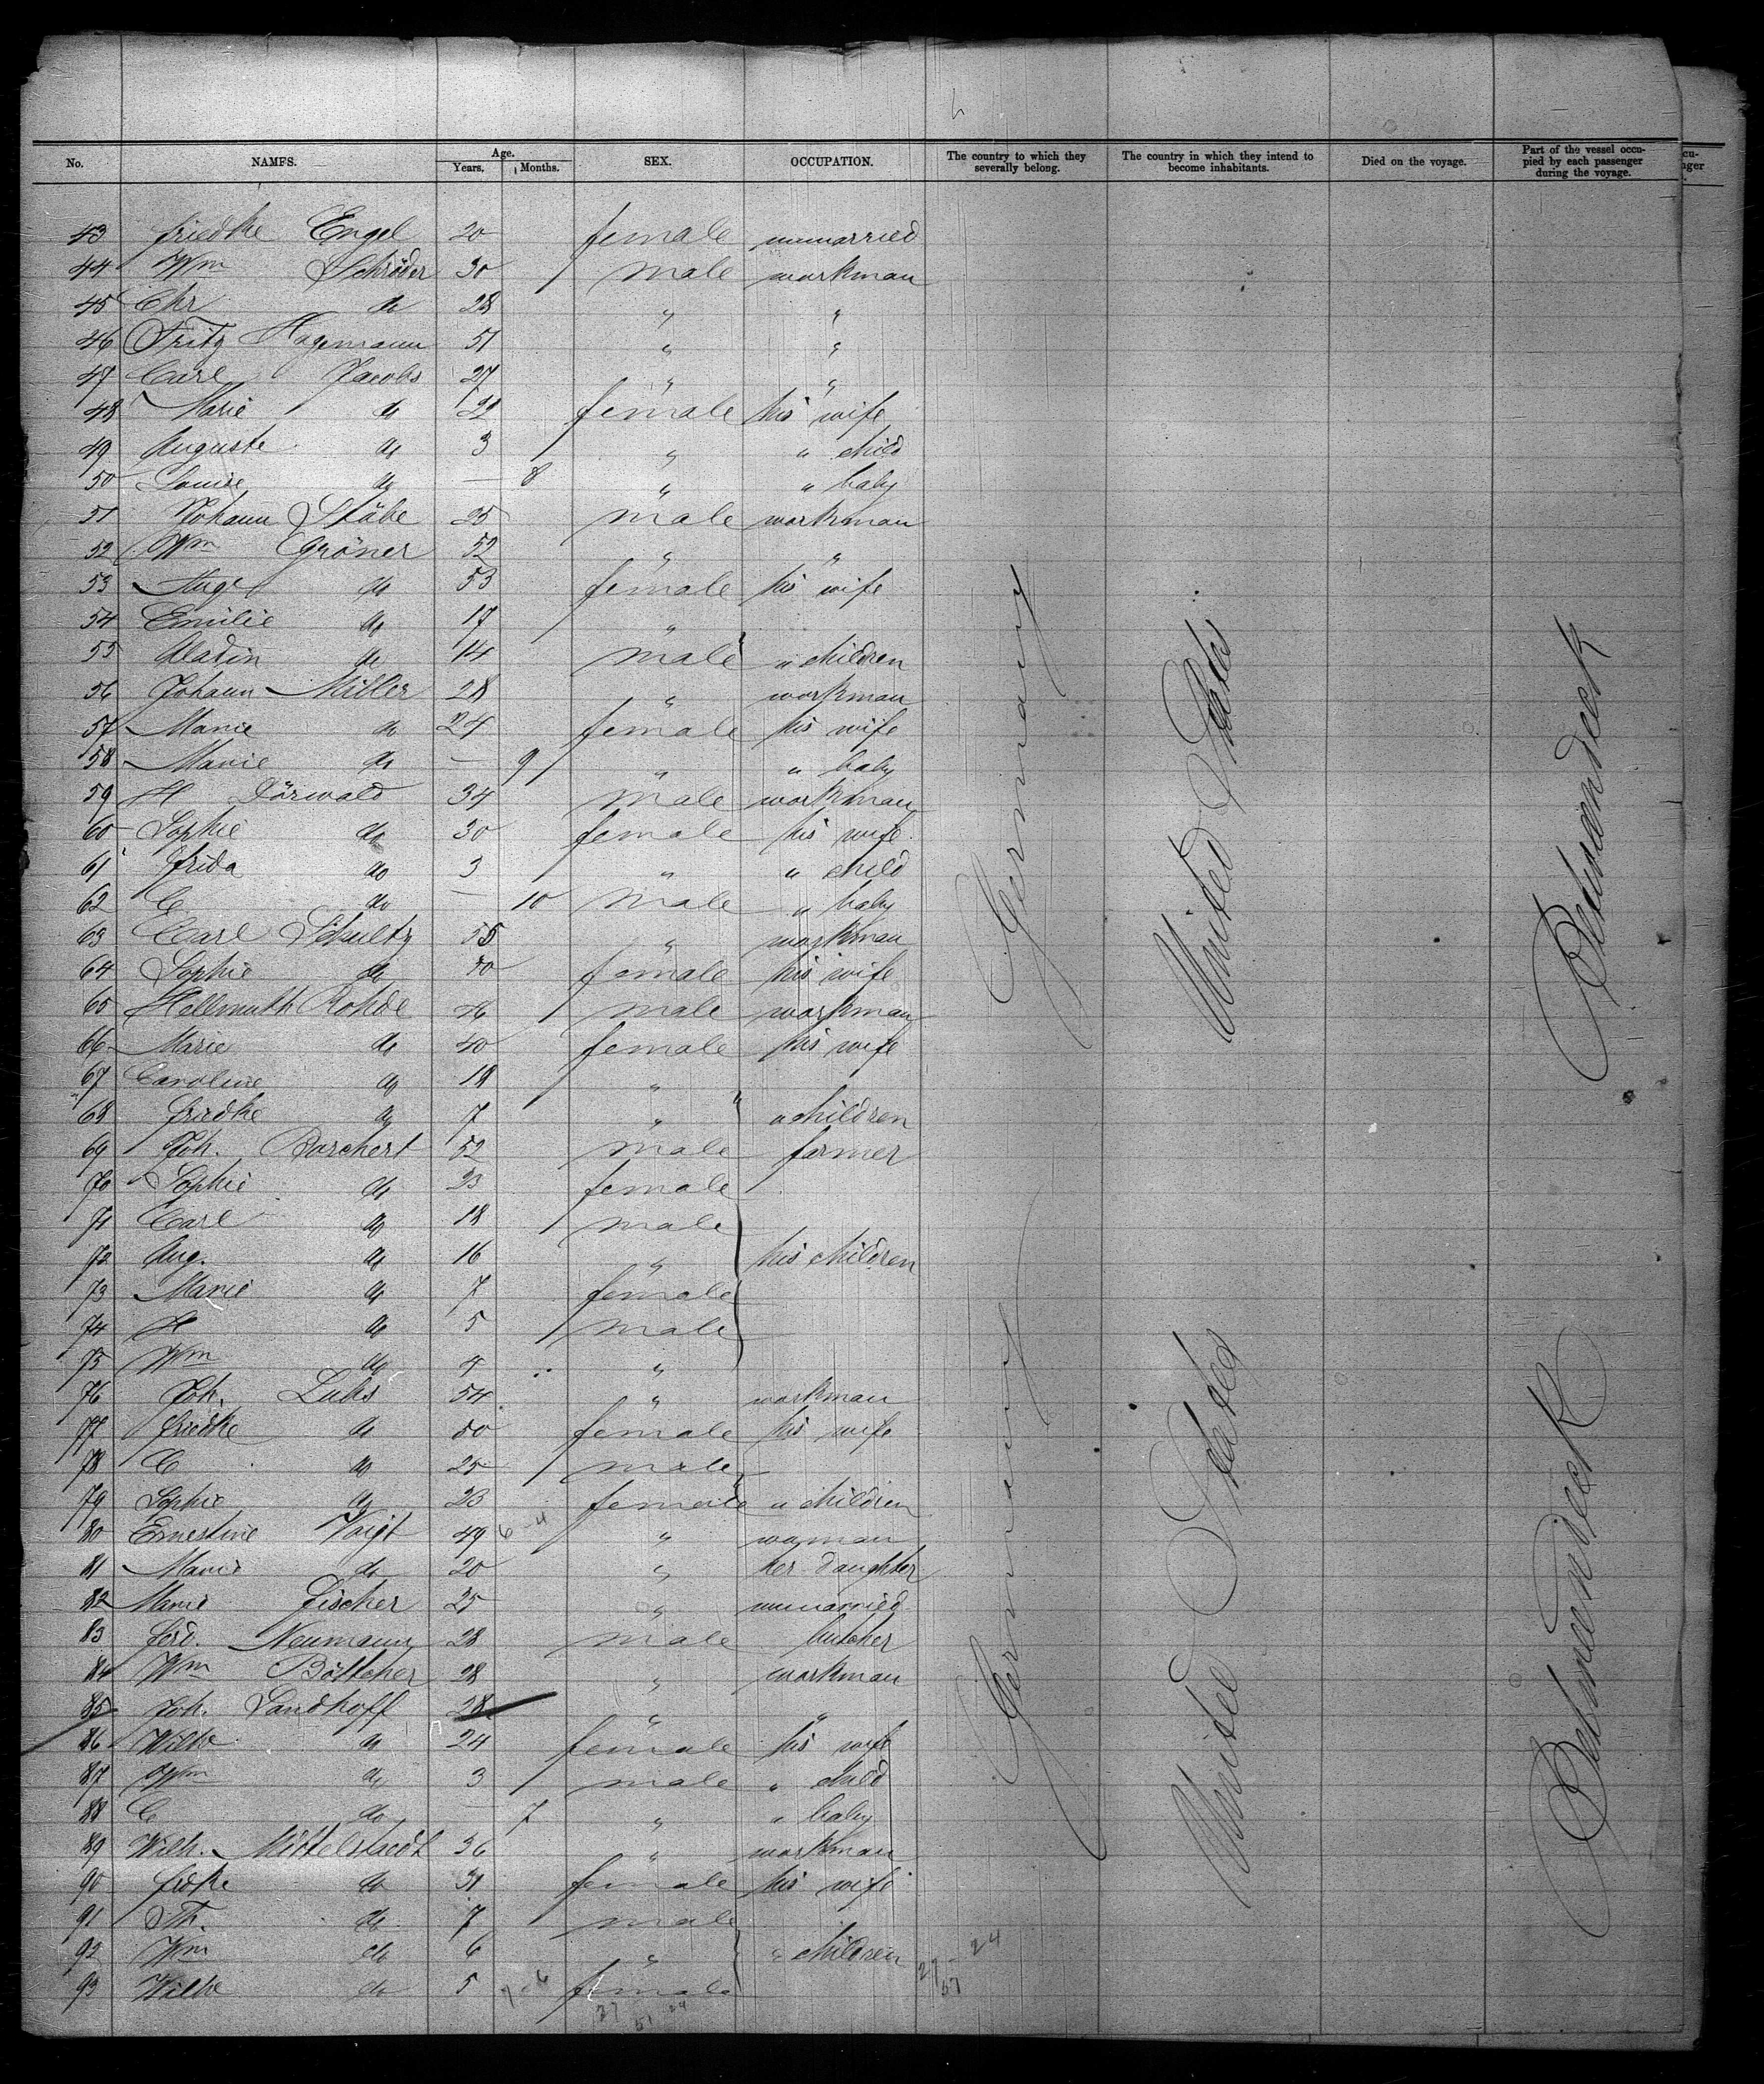 No. NAMES. Age. Years. Months. SEX. OCCUPATION. The country to which they severally belong. The country in which they intend to become inhabitants. Died on the voyage. Part of the vessel occupied by each passenger during the voyage.
43 Friedke Engel 20 female unmarried
44 Wm Schröder 30 male workman
45 Chr do 28 " "
46 Fritz Hagemann 51 " "
47 Carl Jacobs 27 " "
48 Marie do 22 female his wife
49 Auguste do 3 " " child
50 Louise do — 8 " " baby
51 Johann Stübe 25 male workman
52 Wm Gröner 52 " "
53 Aug do 53 female his wife
54 Emilie do 17 "
55 do 14 male " children
56 Johann Miller 28 " workman
57 Marie do 24 female his wife
58 Marie do — 9 " " baby
59 H Dörwald 34 male workman
60 Sophie do 30 female his wife
61 Frida do 3 " " child
62 C do — 10 male " baby
63 Carl Schultz 55 " workman
64 Sophie do 50 female his wife
65 Hellmuth Rohde 46 male workman
66 Marie do 40 female his wife
67 Caroline do 18 "
68 Friedke do 7 " " children
69 Joh. Borchert 52 male farmer
70 Sophie do 23 female
71 Carl do 18 male
72 Aug. do 16 " his children
73 Marie do 7 female
74 H do 5 male
75 Wm do 4 "
76 Joh. Luhs 54 " workman
77 Friedke do 50 female his wife
78 C do 25 male
79 Sophie do 23 female " children
80 Ernestine Voigt 49 6 4 " woman
81 Marie do 20 " her daughter
82 Marie Fischer 25 " unmarried
83 Ferd. Neumann 28 male butcher
84 Wm Böttcher 28 " workman
85 Joh. Sandhoff 28 " "
86 Wilhe do 24 female his wife
87 Wm do 3 male " child
88 C do — 7 " " baby
89 Wilh. Mittelstaedt 36 " workman
90 Fridke do 31 female his wife
91 Th. do 7 male
92 Wm do 6 " " children
93 Wilhe do 5 female
27 24
57
7 6
27 24
51
Germany United States Betweendeck
Germany United States Betweendeck